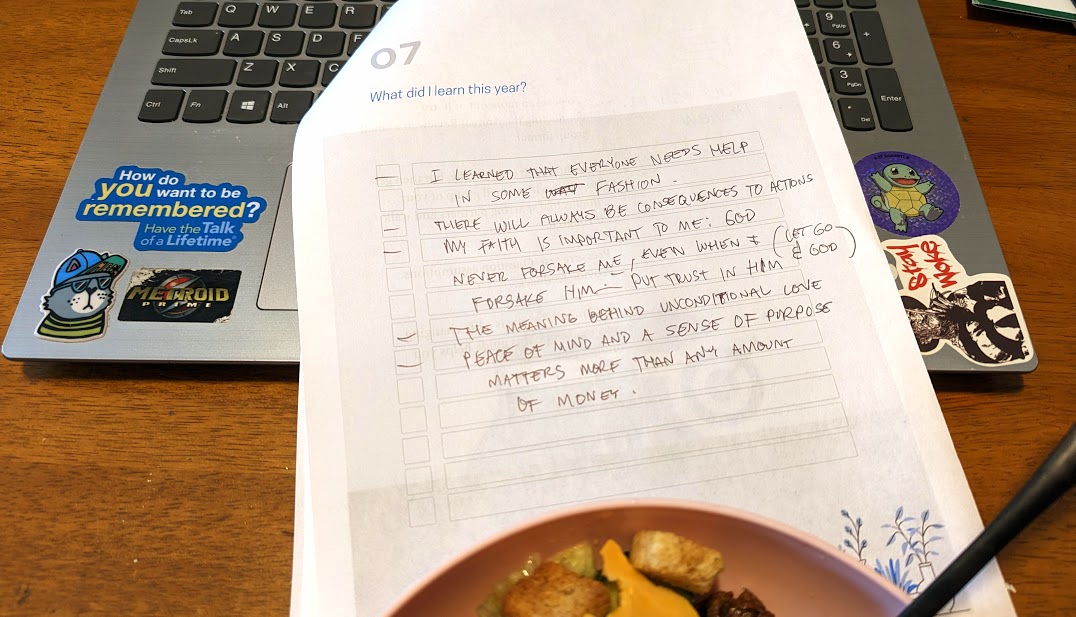 Tab Q W E R
CapsLk A S D F
Shift Z X C
Ctrl Fn Alt
9
PgUp
+
6
3
PgDn
Enter
.
Del
07
What did I learn this year?
— I LEARNED THAT EVERYONE NEEDS HELP
IN SOME WAY FASHION.
— THERE WILL ALWAYS BE CONSEQUENCES TO ACTIONS
— MY FAITH IS IMPORTANT TO ME: GOD
NEVER FORSAKE ME, EVEN WHEN I (LET GO
FORSAKE HIM — PUT TRUST IN HIM & GOD)
— THE MEANING BEHIND UNCONDITIONAL LOVE
— PEACE OF MIND AND A SENSE OF PURPOSE
MATTERS MORE THAN ANY AMOUNT
OF MONEY.
How do
you want to be
remembered?
Have the Talk
of a Lifetime®
METROID
PRIME
Stay
Woke